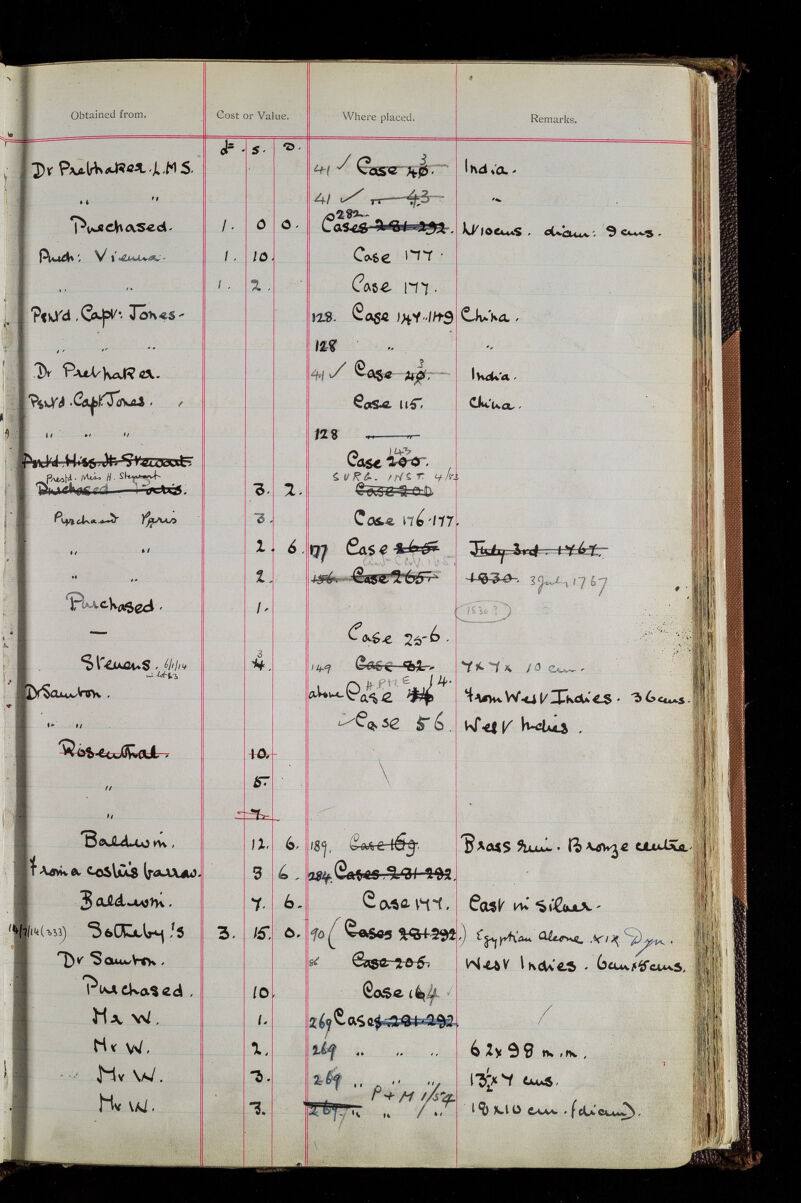 Obtained from. Cost or Value. Where placed. Remarks.
£ . s. D.
Dr Prabhaker. I. M S. 41 ✓ Case 3 40. India.
" " 41 ✓ " 43 "
Purchased. 1. 0 0. Cases 282 281-292. W 10 cms. diam: 9 cms.
Purch: Vienna. 1. 10. Case 177.
" " 1. 2. Case 177.
Pres'd. Capt: Jones 128. Case 147-149 China.
" " " 128 "
Dr Prabhaker. 41 ✓ Case 3 40. India.
Pres'd. Capt Jones. Case 115. China.
" " " 128 "
Pres'd. Miss. H. Stewart Case 143 200.
Pres'd. Miss H. Stewart SURG. INST. 4/72
Purchased Paris. 3. 2. Case 200
Purchased Paris 3. Case 176-177.
" " 2. 6. 177 Case 265 July 3rd. 1767.
" " 2. 156. Case 265 1830. 3 July 1767
Purchased. 1. (1830?)
— Case 256.
Stevens. 6/1/14 3 4. 149 Case 32. 7 x 7 x 10 cm.
Lot 63
Dr Sambon. above Case APME 14. from West Indies. 36 cms.
" " Case 56. West Indies.
Rosenthal. 10.
" 5.
" 7.
Baldwin. 12. 6. 189. Case 169. Brass rim. Bronze centre.
from a costus barrow. 3 6. 284. Cases. 281-292.
Baldwin. 7. 6. Case 177. East in Silver.
14/7/14 (333) Sotheby's 3. 15. 0. 90 (Cases 281-292.) Egyptian Alcove. XIX Dyn.
Dr Sambon. Case 205. West Indies. 6 cms x 5 cms.
Purchased. 10. Case 164.
Mr W. 1. 269 Cases 281-292. /
Mr W. 2. 269 " " " 62 x 98 m.m.
Mr W. 3. 269 " " " 13½ x 7 cms.
P+M 1/54
Mr W. 3. 269 " " / " 18 x 10 cm. (diam).